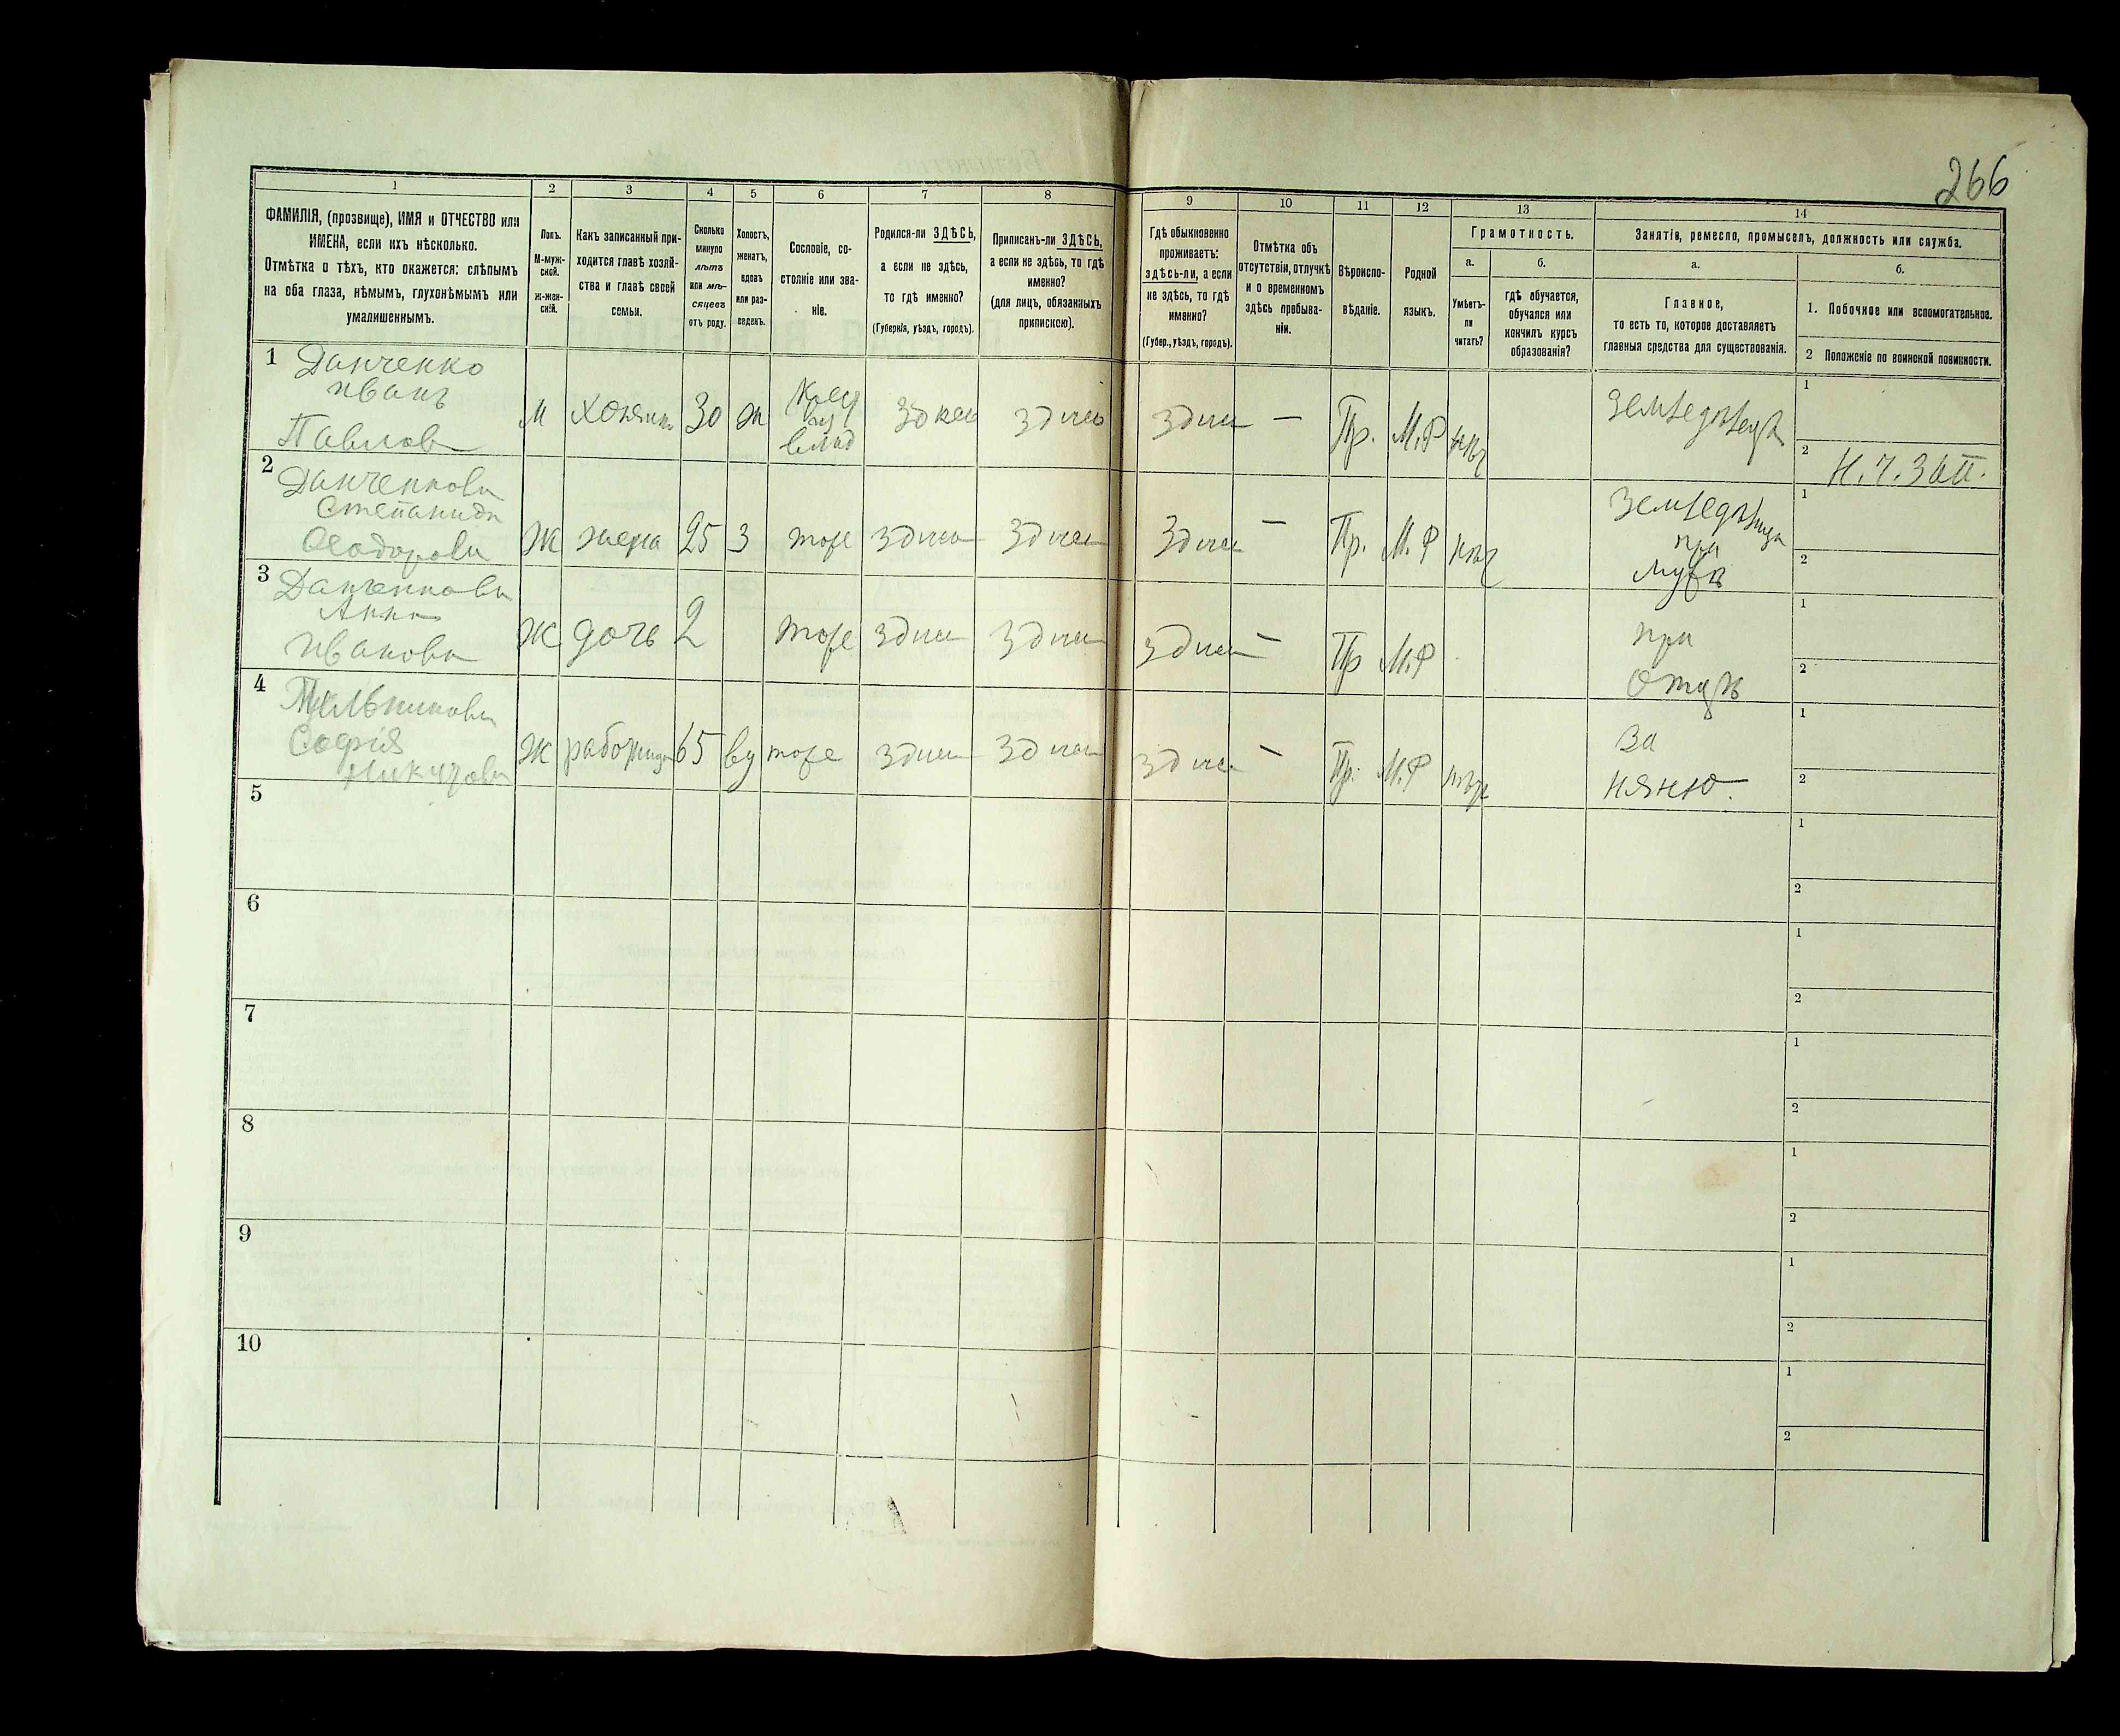 266
1
2
3
4
5
6
7
8
9
10
11
12
13
14
ФАМИЛІЯ, (прозвище), ИМЯ и ОТЧЕСТВО или
ИМЕНА, если ихъ нѣсколько.
Отмѣтка о тѣхъ, кто окажется: слѣпымъ
на оба глаза, нѣмымъ, глухонѣмымъ или
умалишеннымъ.
Полъ.
М-муж-
ской.
ж-жен-
скій.
Какъ записанный при-
ходится главѣ хозяй-
ства и главѣ своей
семьи.
Сколько
минуло
лѣтъ
или мѣ-
сяцевъ
отъ роду.
Холостъ,
женатъ,
вдовъ
или раз-
веденъ.
Сословіе, со-
стояніе или зва-
ніе.
Родился-ли ЗДѢСЬ,
а если не здѣсь,
то гдѣ именно?
(Губернія, уѣздъ, городъ).
Приписанъ-ли ЗДѢСЬ,
а если не здѣсь, то гдѣ
именно?
(для лицъ, обязанныхъ
припискою).
Гдѣ обыкновенно
проживаетъ:
здѣсь-ли, а если
не здѣсь, то гдѣ
именно?
(Губер., уѣздъ, городъ).
Отмѣтка объ
отсутствіи, отлучкѣ
и о временномъ
здѣсь пребыва-
ніи.
Вѣроиспо-
вѣданіе.
Родной
языкъ.
Грамотность.
а.
Умѣетъ-
ли
читать?
б.
гдѣ обучается,
обучался или
кончилъ курсъ
образованія?
Занятіе, ремесло, промыселъ, должность или служба.
а.
Главное,
то есть то, которое доставляетъ
главныя средства для существованія.
б.
1. Побочное или вспомогательное.
2 Положеніе по воинской повинности.
1
Данченко
Иванъ
Павлов
М
Хозяин
30
ж
здись
здись
—
Пр.
М.Р
нѣт
1
2
2
Данченкова
Степанида
Феодорова
Ж
жена
25
З
тоже
здись
здись
здись
—
Пр.
М.Р
нѣт
при
мужѣ
1
2
3
Данченкова
Анна
Иванова
Ж
дочь
2
тоже
здись
здись
здись
—
Пр
М.Р
при
отцѣ
1
2
4
Мельникова
Софія
Ж
работница
65
вд
тоже
здись
здись
здись
—
Пр.
М.Р
За
няню.
1
2
5
1
2
6
1
2
7
1
2
8
1
2
9
1
2
10
1
2